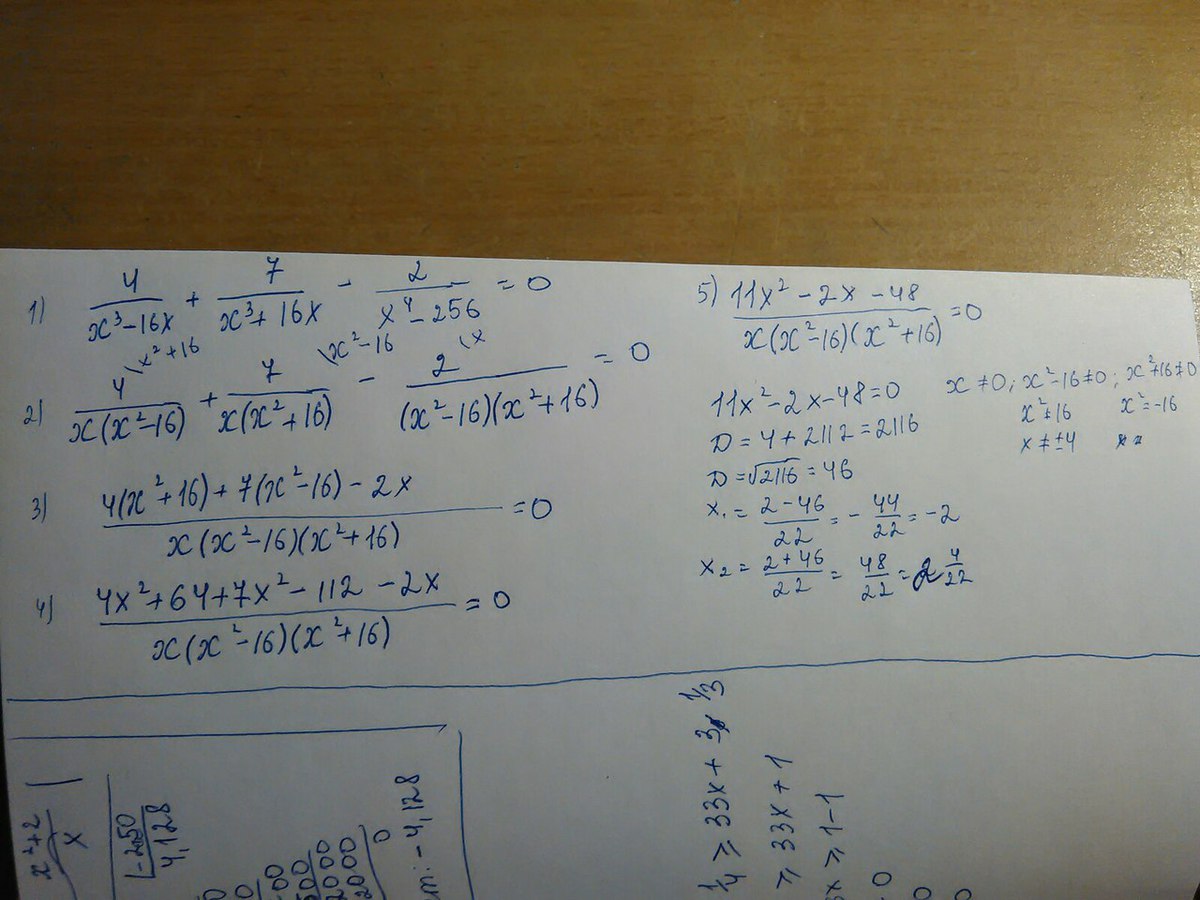 1) 4/(x³-16x) + 7/(x³+16x) - 2/(x⁴-256) = 0
\x²+16 \x²-16 \x
2) 4/(x(x²-16)) + 7/(x(x²+16)) - 2/((x²-16)(x²+16)) = 0
3) (4(x²+16)+7(x²-16)-2x)/(x(x²-16)(x²+16)) = 0
4) (4x²+64+7x²-112-2x)/(x(x²-16)(x²+16)) = 0
5) (11x²-2x-48)/(x(x²-16)(x²+16)) = 0
11x²-2x-48=0
D=4+2112=2116
D=√2116=46
x₁=(2-46)/22=-44/22=-2
x₂=(2+46)/22=48/22=2 4/22
x≠0; x²-16≠0; x²+16≠0
x²≠16 x²=-16
x≠±4
x²+2/x
-250
4,128
0
m: -4,128
1/4 ≥ 33x + 3 1/3
≥ 33x + 1
x ≥ 1-1